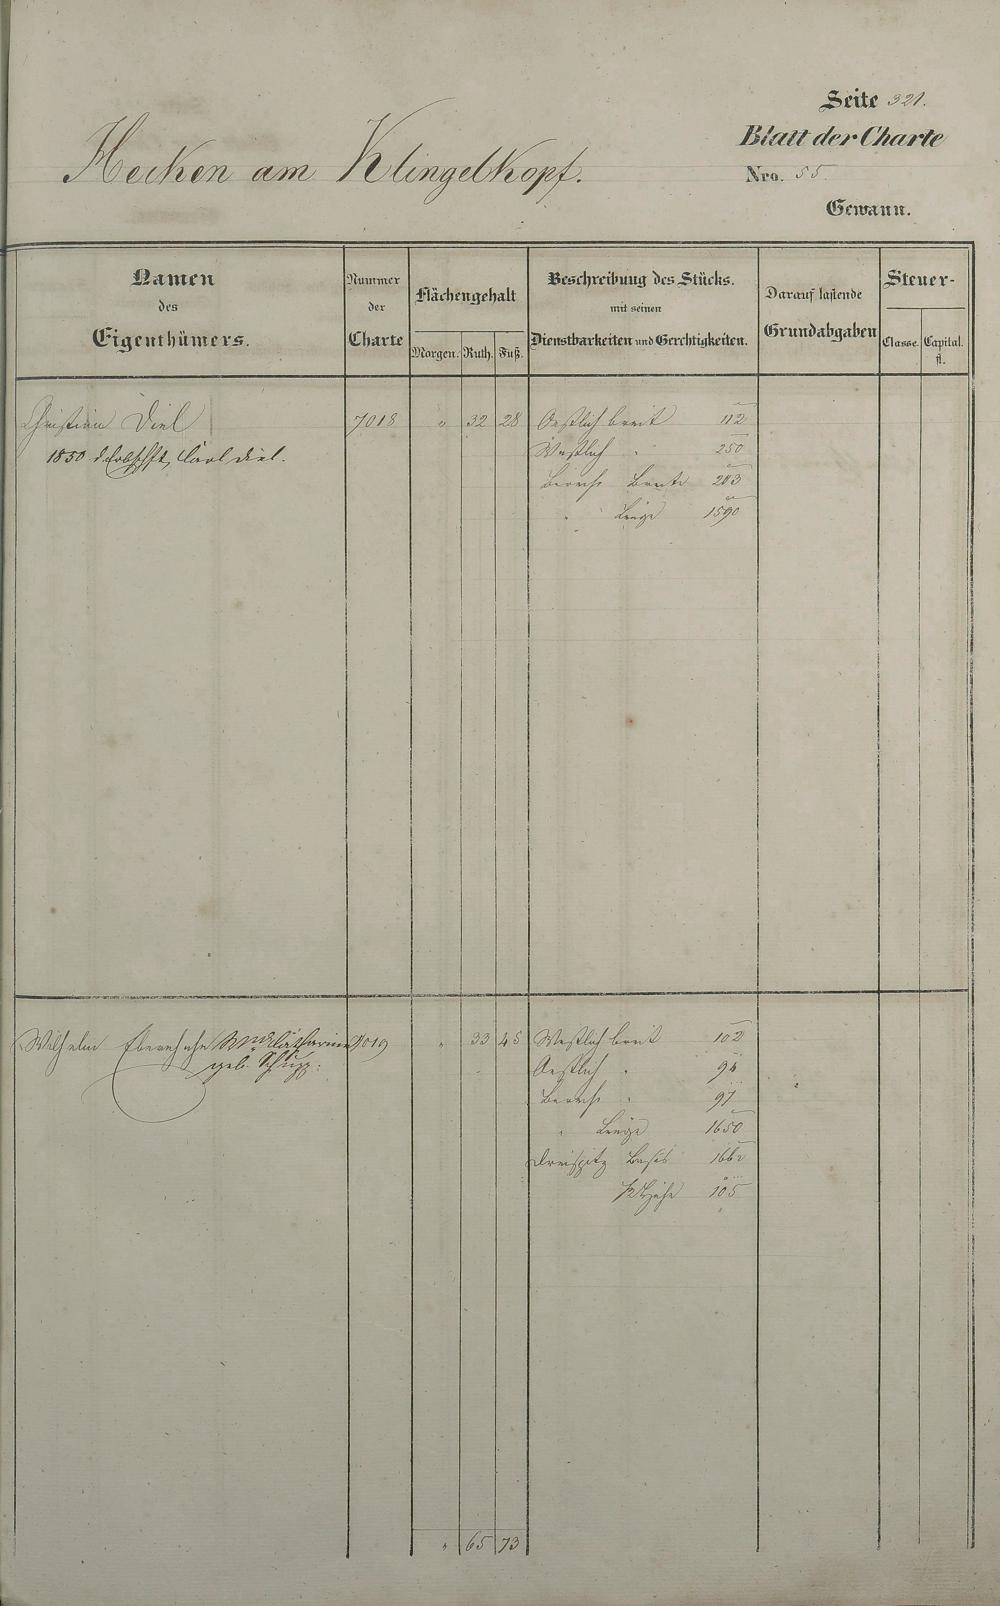 Seite 321.
Blatt der Charte
Hecken am Klingelkopf.
Nro. 55
Gewann.
Namen
des
Eigenthümers.
Nummer
der
Charte
Flächengehalt
Morgen. Ruth. Fuß.
Beschreibung des Stücks.
mit seinen
Dienstbarkeiten und Gerechtigkeiten.
Darauf lastende
Grundabgaben
Steuer-
Classe. Capital.
fl.
Christian Diel 7018 " 32 28 Oestlich breit 112
1850 d. Erbschft, Carl Diel. Westlich " 250
Breite 203
" Länge 1590
Wilhelm 7019 " 33 45 Westlich breit 102
geb. Schupp. Oestlich "
" 97
" Länge 1650
Dreispitz Basis
1/2 Höhe 105
" 65 73